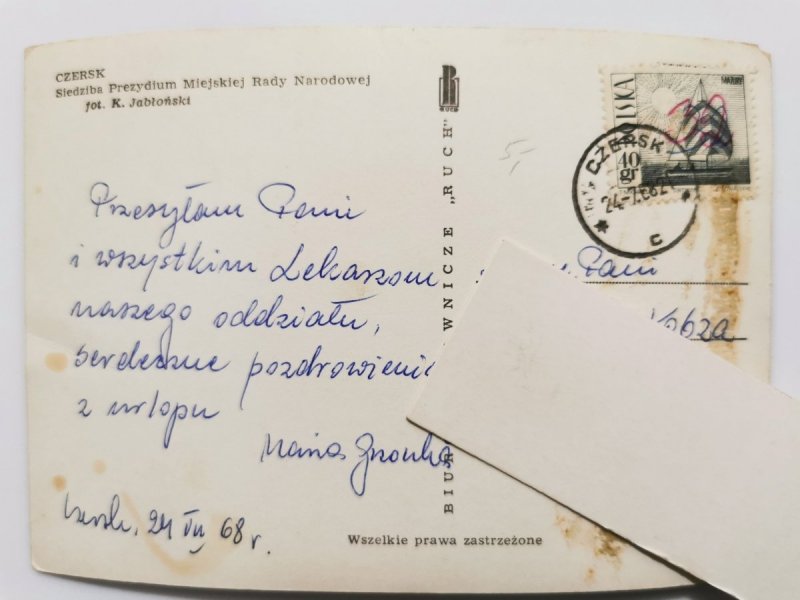 CZERSK
Siedziba Prezydium Miejskiej Rady Narodowej
fot. K. Jabłoński
Przesyłam Pani
i wszystkim Lekarzom
naszego oddziału,
serdeczne pozdrowienia
z urlopu
Maria
24 VII 68 r.
BIUR WNICZE „RUCH"
RUCH
5,-
POLSKA
MAZURY
40 gr
CZERSK
24-7.68
c
Pani
Wszelkie prawa zastrzeżone